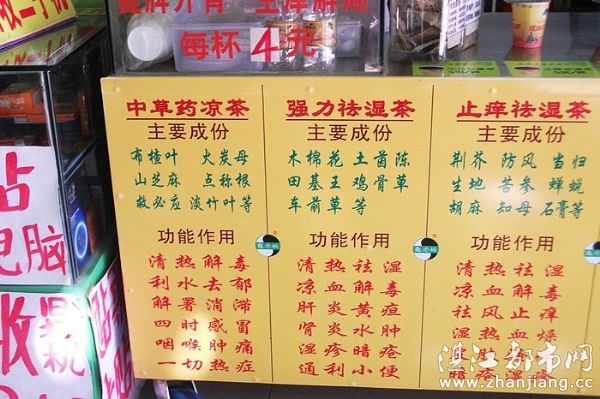 每杯4元
中草药凉茶
主要成份
布楂叶 火炭母
山芝麻 点称根
救必应 淡竹叶等
功能作用
清热解毒
利水去郁
解署消滞
四时感冒
咽喉肿痛
一切热症
强力祛湿茶
主要成份
木棉花 土茵陈
田基王 鸡骨草
车前草等
功能作用
清热祛湿
凉血解毒
肝炎黄疸
肾炎水肿
湿疹暗疮
通利小便
止痒祛湿茶
主要成份
荆芥 防风 当归
生地 苦参 蝉蜕
胡麻 知母 石膏等
功能作用
清热祛湿
凉血解毒
祛风止痒
湿热血燥
暗疮湿疹
湛江都市网
www.zhanjiang.cc